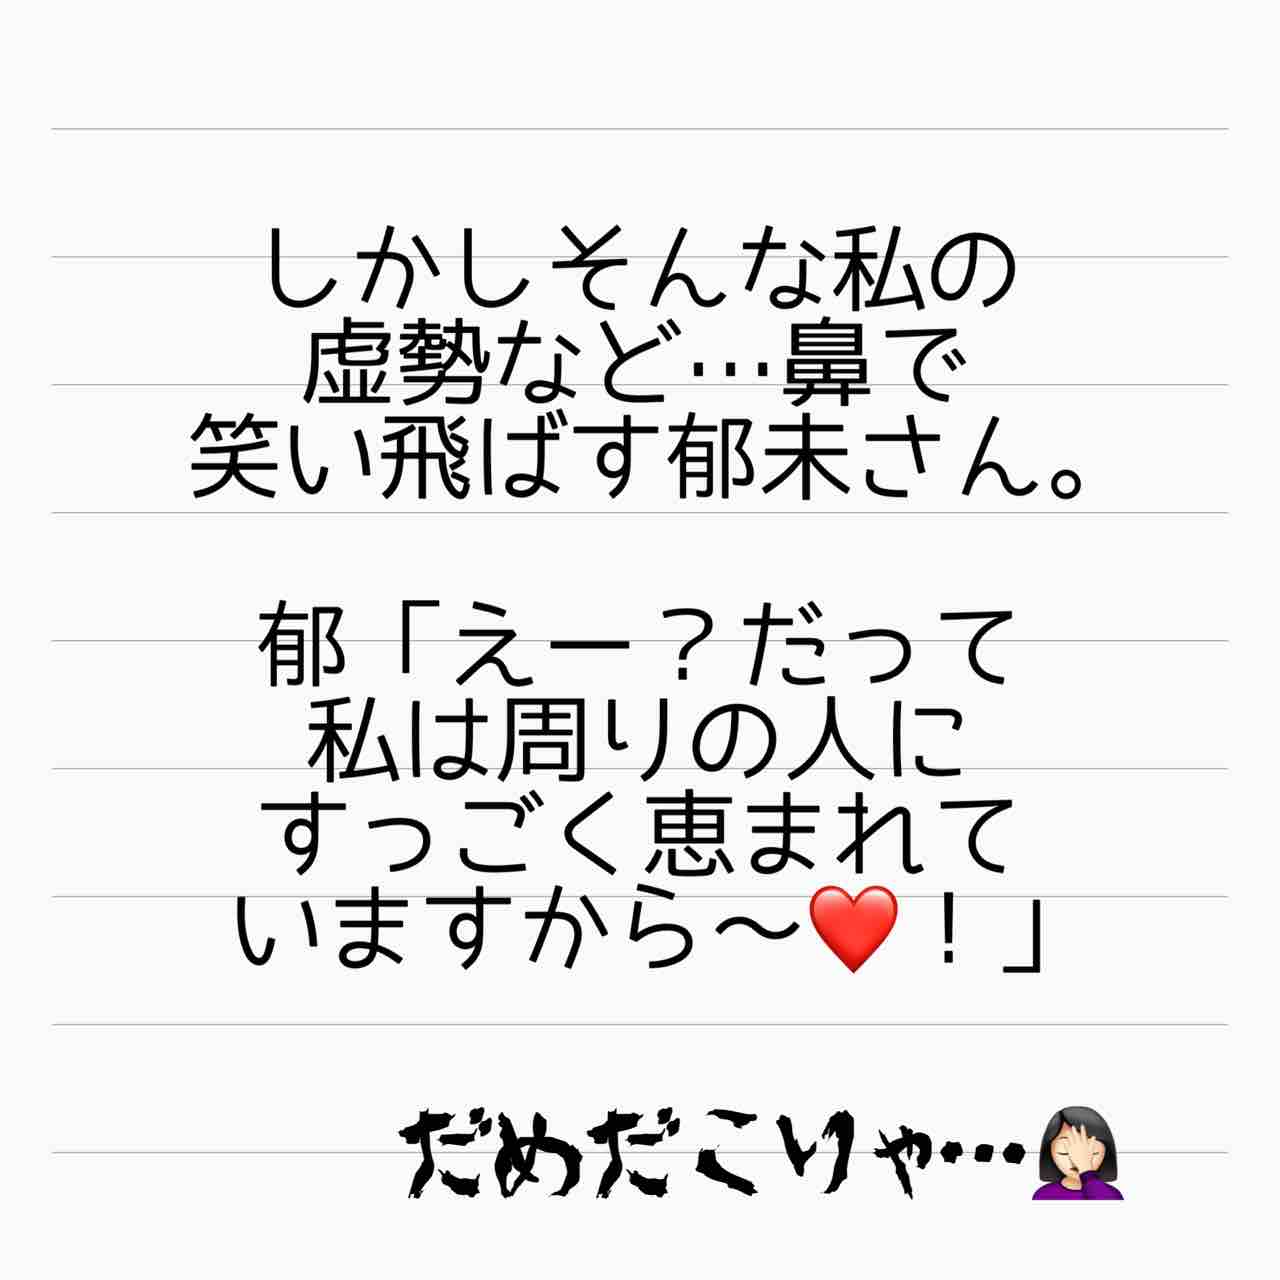 しかしそんな私の
虚勢など…鼻で
笑い飛ばす郁未さん。
郁「えー？だって
私は周りの人に
すっごく恵まれて
いますから〜❤️！」
だめだこりゃ…🤦🏻‍♀️